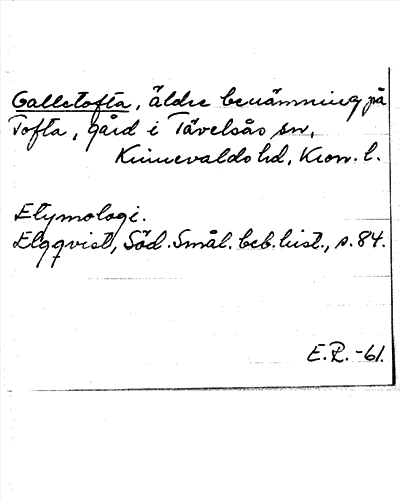 Galletofta, äldre benämning på
Tofta, gård i Tävelsås sn,
Kinnevalds hd, Kron. l.
Etymologi.
Elgqvist, Söd. Smål. beb. hist., s. 84.
E.R. -61.